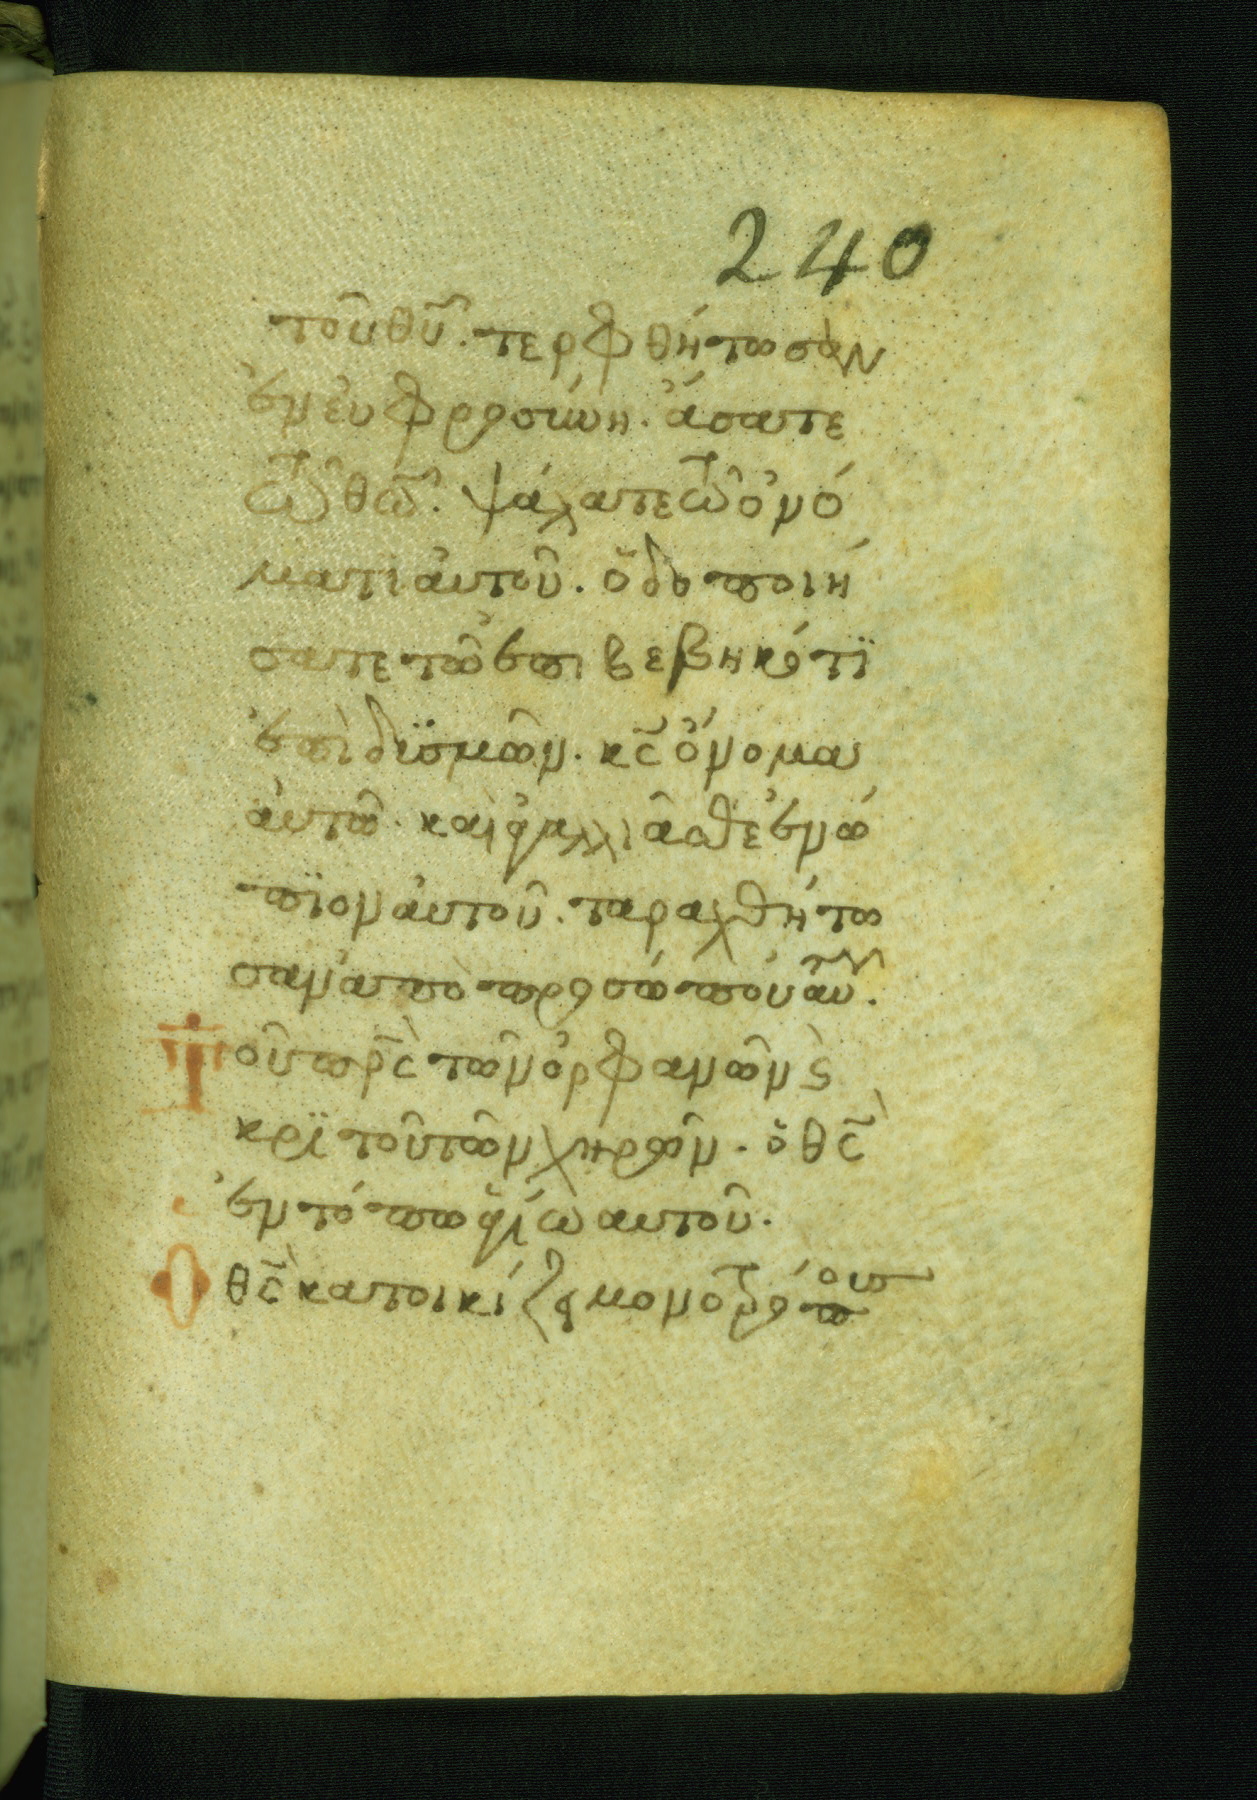 240
τοῦ θῦ. τερφθήτωσαν
ἐν εὐφροσύνη. ἄσατε
τῶ θῶ. ψάλατε τῶ ὀνό
ματι αὐτοῦ. ὁδοποιή
σατε τῶ ἐπιβεβηκότϊ
ἐπὶ δϋσμῶν. κς ὄνομα
αὐτῶ. καὶ ἀγαλλιᾶσθε ἐνώ
πϊον αὐτοῦ. ταραχθήτω
σαν ἀπὸ προσώπου αὐτοῦ.
Τοῦ πρς τῶν ὀρφανῶν ς
κριτοῦ τῶν χηρῶν. ὁ θς
ἐν τόπω ἁγίω αυτοῦ.
Ὁ θς κατοικίζει μονοτρόπους